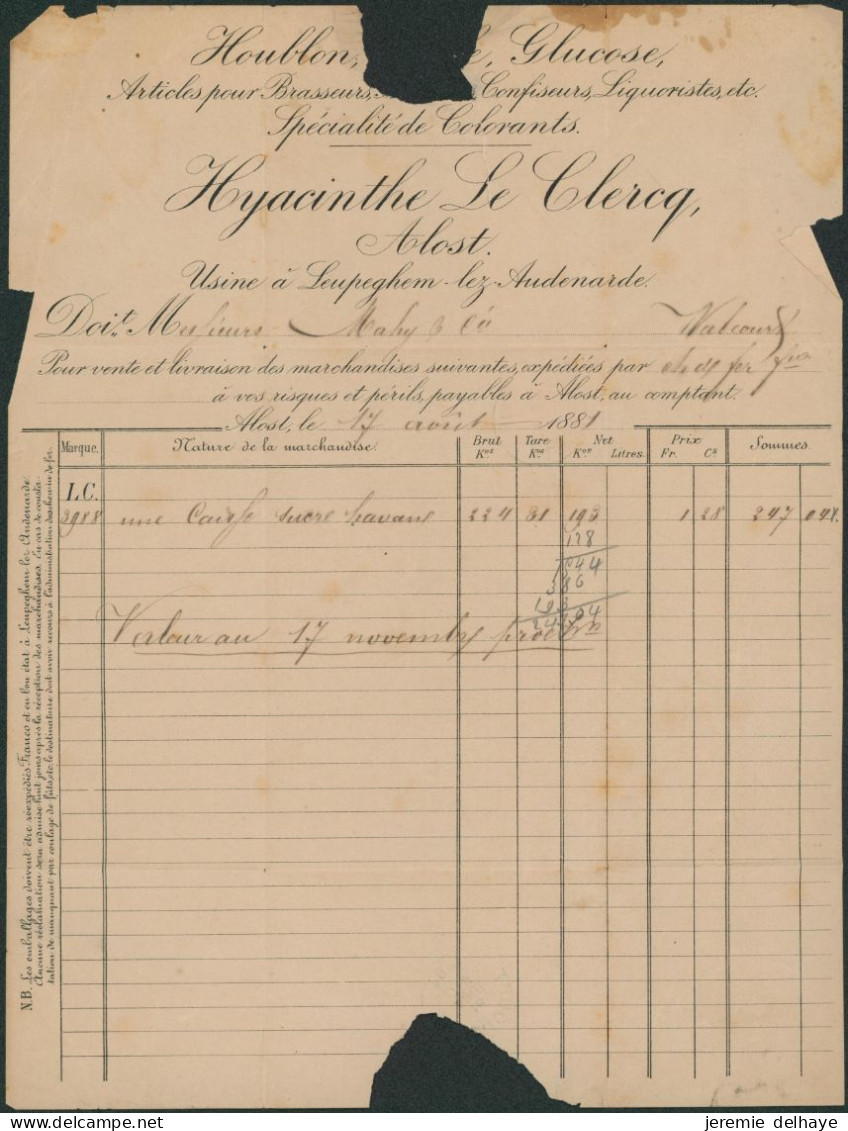 Houblon, Glucose,
Articles pour Brasseurs, Confiseurs, Liquoristes, etc.
Spécialité de Colorants.
Hyacinthe Le Clercq,
Alost.
Usine à Leupeghem-lez-Audenarde.
Doiv.t Messieurs Mahy & Cie Walcourt
Pour vente et livraison des marchandises suivantes, expédiées par ch de fer fco
à vos risques et périls, payables à Alost, au comptant.
Alost, le 17 août 1881
Marque. Nature de la marchandise. Brut Kos Tare Kos Net Kos Litres. Prix Fr. Cs Sommes.
L.C.
3988 une Caisse sucre havane 224 31 193 1 28 247 04
128
1544
386
193
247.04
Valeur au 17 novembre
N.B. Les emballages doivent être réexpédiés Franco et en bon état à Leupeghem-lez-Audenarde.
Aucune réclamation sera admise huit jours après la réception des marchandises. En cas de consta-
tation de manquant par coulage de fûts, etc. le destinataire doit avoir recours à l'administration des chemin de fer.
jeremie delhaye